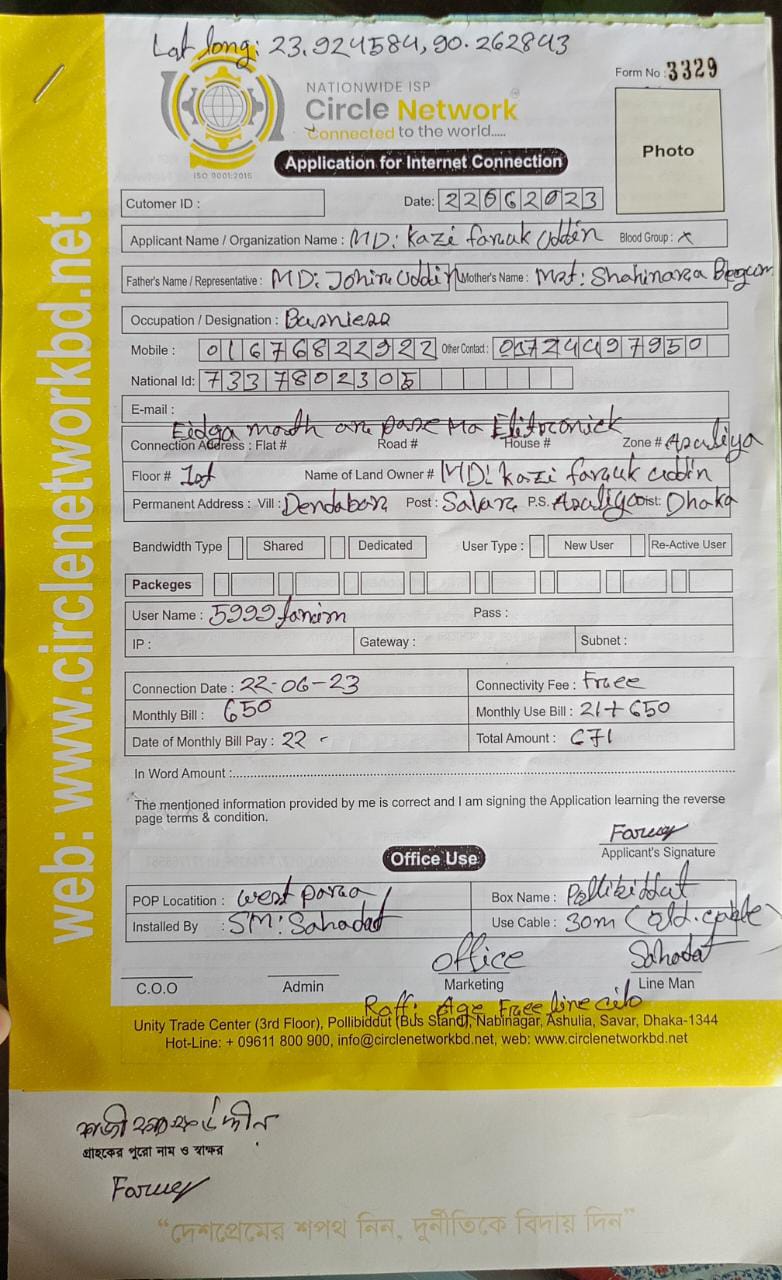 Lat long: 23.924584, 90.262843
Form No : 3329
NATIONWIDE ISP
Circle Network
Connected to the world.....
ISO 9001:2015
Application for Internet Connection
Photo
Cutomer ID :
Date: 22062023
Applicant Name / Organization Name : MD: Kazi faruk Uddin Blood Group : x
Father's Name / Representative : MD: Johir Uddin Mother's Name : Mst: Shahinara Begum
Occupation / Designation : Busniess
Mobile : 01676822922 Other Contact : 01724497950
National Id: 7337802305
E-mail :
Eidga math
Connection Address : Flat # Road # House # Zone # Asuliya
Floor # 1st Name of Land Owner # MD: kazi faruk uddin
Permanent Address : Vill : Dendabor Post : Savar P.S. Asuliya Dist: Dhaka
Bandwidth Type Shared Dedicated User Type : New User Re-Active User
Packeges
User Name : 5999 Pass :
IP : Gateway : Subnet :
Connection Date : 22-06-23 Connectivity Fee : Free
Monthly Bill : 650 Monthly Use Bill : 21+650
Date of Monthly Bill Pay : 22 - Total Amount : 671
In Word Amount :
The mentioned information provided by me is correct and I am signing the Application learning the reverse
page terms & condition.
Faruq
Applicant's Signature
Office Use
POP Locatition : west para Box Name : Pollibiddut
Installed By : SM: Sahadat Use Cable : 30m (old.cable)
office Sahadat
C.O.O Admin Marketing Line Man
Free line
Unity Trade Center (3rd Floor), Pollibiddut (Bus Stand), Nabinagar, Ashulia, Savar, Dhaka-1344
Hot-Line: + 09611 800 900, info@circlenetworkbd.net, web: www.circlenetworkbd.net
web: www.circlenetworkbd.net
কাজী ফারুক উদ্দীন
গ্রাহকের পুরো নাম ও স্বাক্ষর
Faruq
“দেশপ্রেমের শপথ নিন, দুর্নীতিকে বিদায় দিন”